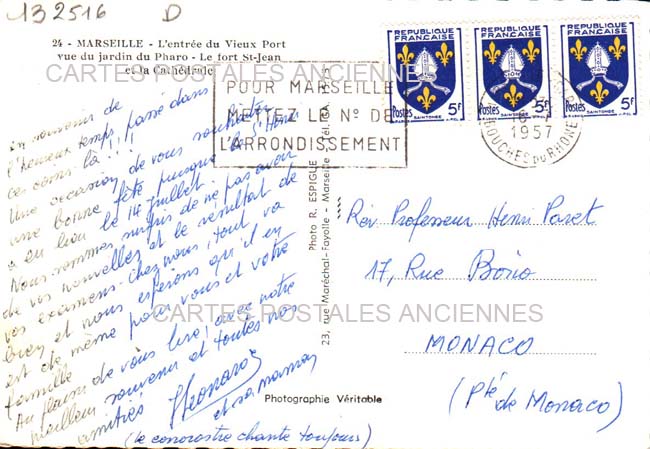 132516 D
24 - MARSEILLE - L'entrée du Vieux Port
vue du jardin du Pharo - Le fort St-Jean
et la Cathédrale
CARTES POSTALES ANCIENNES
POUR MARSEILLE
METTEZ LE Nº DE
L'ARRONDISSEMENT
REPUBLIQUE FRANÇAISE
Postes 5F
SAINTONGE
REPUBLIQUE FRANÇAISE
Postes 5F
SAINTONGE
REPUBLIQUE FRANÇAISE
Postes 5F
SAINTONGE
1957
BOUCHES DU RHONE
En souvenir de
l'heureux temps passé dans
ces coins là !!!!
Une occasion de vous souhaiter
une bonne fête puisque la St Henri
a eu lieu le 14 juillet.
Nous sommes surpris de ne pas avoir
de vos nouvelles et le résultat de
vos examens. Chez nous, tout va
bien et nous espérons qu'il en
est de même pour vous et votre
famille
Au plaisir de vous lire, avec notre
meilleur souvenir et toutes nos
amitiés
et sa maman
(le conorostre chante toujours)
Photo R. ESPIGUE
23, rue Maréchal-Fayolle - Marseille - Tél. GA.
Photographie Véritable
Rév Professeur Henri Paret
17, Rue Bosio
CARTES POSTALES ANCIENNES
MONACO
(Pté de Monaco)